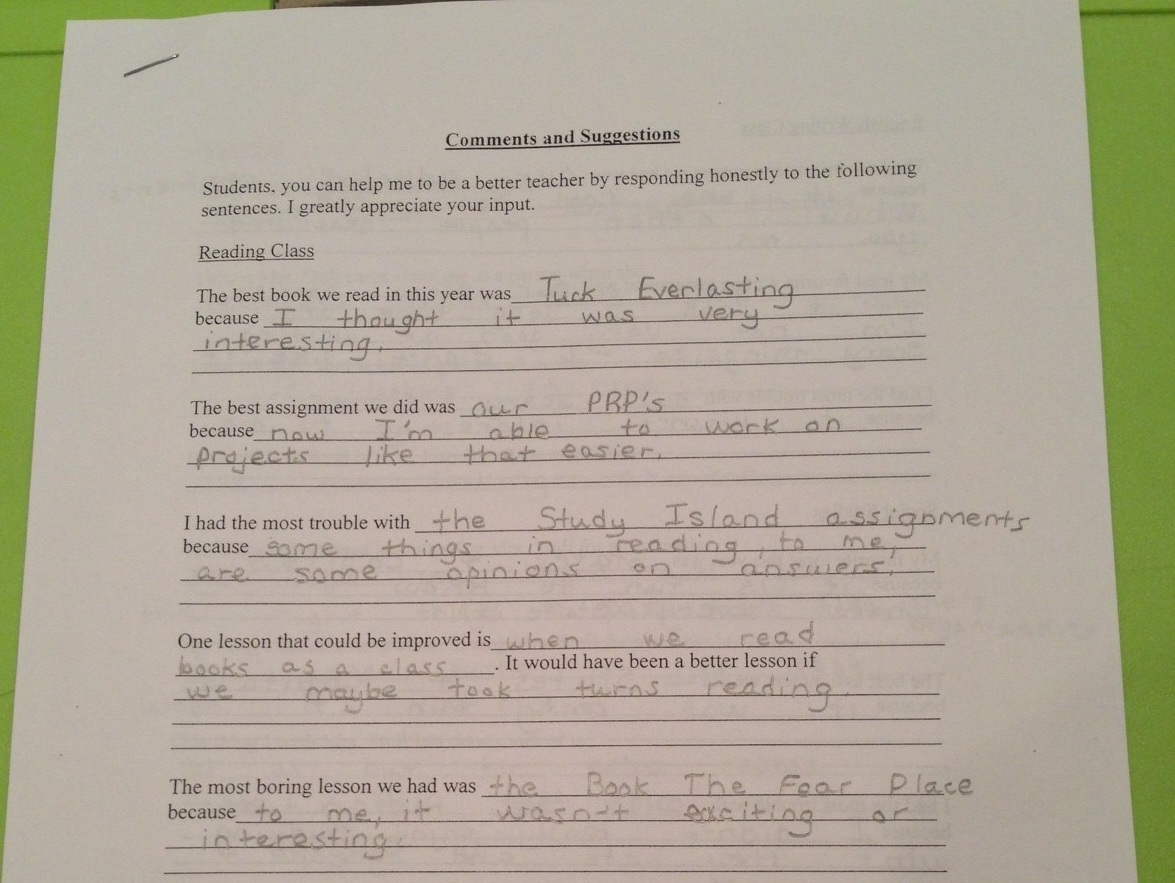 Comments and Suggestions
Students, you can help me to be a better teacher by responding honestly to the following
sentences. I greatly appreciate your input.
Reading Class
The best book we read in this year was Tuck Everlasting
because I thought it was very
interesting.
The best assignment we did was our PRP's
because now I'm able to work on
projects like that easier.
I had the most trouble with the Study Island assignments
because some things in reading, to me,
are some opinions on answers.
One lesson that could be improved is when we read
books as a class. It would have been a better lesson if
we maybe took turns reading.
The most boring lesson we had was the Book The Fear Place
because to me, it wasn't exciting or
interesting.